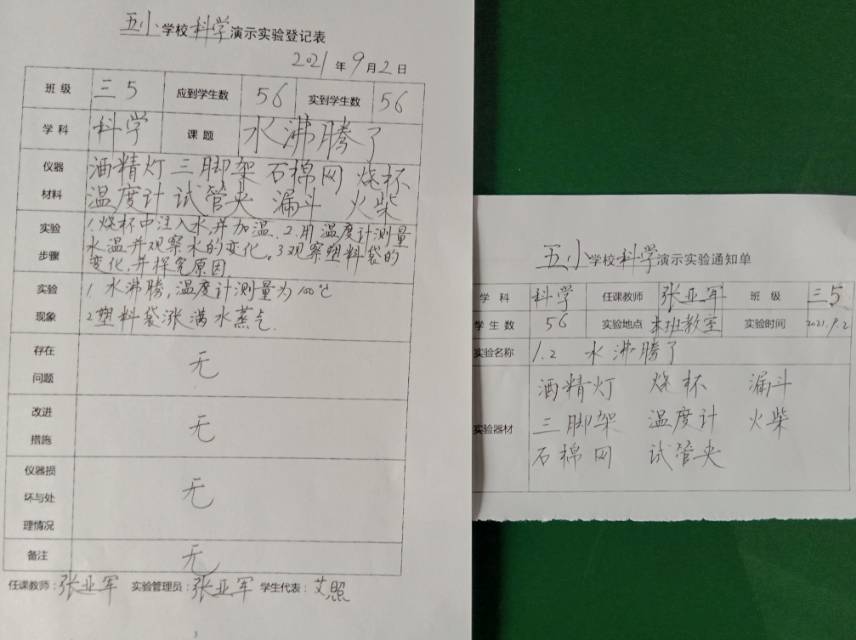 五小学校科学演示实验登记表
2021年9月2日
班级 三5 应到学生数 56 实到学生数 56
学科 科学 课题 水沸腾了
仪器材料 酒精灯 三脚架 石棉网 烧杯
温度计 试管夹 漏斗 火柴
实验步骤 1.烧杯中注入水并加温.2.用温度计测量
水温并观察水的变化.3观察塑料袋的
变化.并探究原因.
实验现象 1.水沸腾,温度计测量为100℃
2塑料袋涨满水蒸气.
存在问题 无
改进措施 无
仪器损坏与处理情况 无
备注 无
任课教师:张亚军 实验管理员:张亚军 学生代表:艾照
五小学校科学演示实验通知单
学科 科学 任课教师 张亚军 班级 三5
学生数 56 实验地点 本班教室 实验时间 2021.9.2
实验名称 1.2 水沸腾了
实验器材 酒精灯 烧杯 漏斗
三脚架 温度计 火柴
石棉网 试管夹